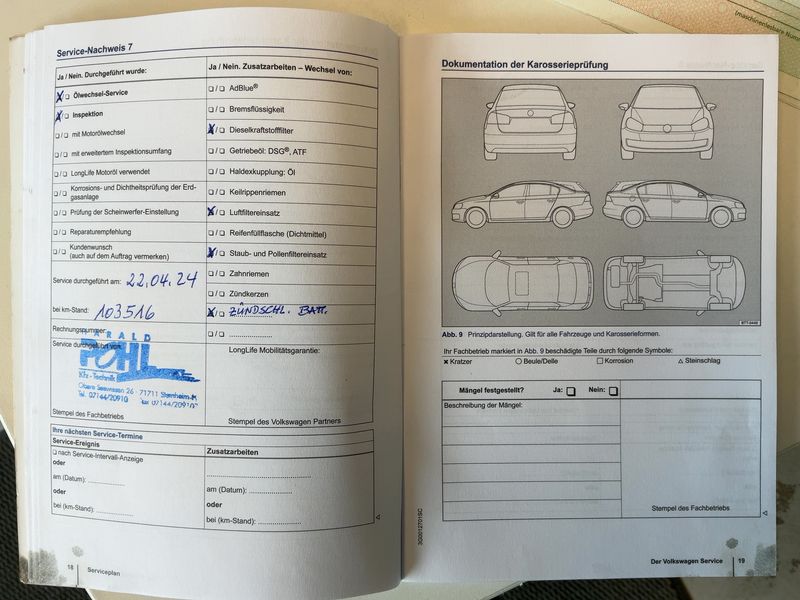 Service-Nachweis 7
Ja / Nein. Durchgeführt wurde:
X/❑ Ölwechsel-Service
X/❑ Inspektion
❑/❑ mit Motorölwechsel
❑/❑ mit erweitertem Inspektionsumfang
❑/❑ LongLife Motoröl verwendet
❑/❑ Korrosions- und Dichtheitsprüfung der Erd-
gasanlage
❑/❑ Prüfung der Scheinwerfer-Einstellung
❑/❑ Reparaturempfehlung
❑/❑ Kundenwunsch
(auch auf dem Auftrag vermerken)
Service durchgeführt am: 22.04.24
bei km-Stand: 103516
Rechnungsnummer
Service durchgeführt von:
HARALD
POHL
Kfz-Technik
Obere Seewiesen 26 · 71711 Steinheim-M
Tel. 07144/20910
Stempel des Fachbetriebs
Ja / Nein. Zusatzarbeiten – Wechsel von:
❑/❑ AdBlue®
❑/❑ Bremsflüssigkeit
X/❑ Dieselkraftstofffilter
❑/❑ Getriebeöl: DSG®, ATF
❑/❑ Haldexkupplung: Öl
❑/❑ Keilrippenriemen
X/❑ Luftfiltereinsatz
❑/❑ Reifenfüllflasche (Dichtmittel)
X/❑ Staub- und Pollenfiltereinsatz
❑/❑ Zahnriemen
❑/❑ Zündkerzen
X/❑ ZÜNDSCHL. BATT.
❑/❑ ....................
LongLife Mobilitätsgarantie:
Stempel des Volkswagen Partners
Ihre nächsten Service-Termine
Service-Ereignis
❑ nach Service-Intervall-Anzeige
oder
am (Datum): ............
oder
bei (km-Stand): ............
Zusatzarbeiten
am (Datum): ............
oder
bei (km-Stand): ............
18 Serviceplan
Dokumentation der Karosserieprüfung
Abb. 9 Prinzipdarstellung. Gilt für alle Fahrzeuge und Karosserieformen.
Ihr Fachbetrieb markiert in Abb. 9 beschädigte Teile durch folgende Symbole:
✖ Kratzer ○ Beule/Delle □ Korrosion △ Steinschlag
Mängel festgestellt? Ja: ❑ Nein: ❑
Beschreibung der Mängel:
Stempel des Fachbetriebs
3G0012701SC
Der Volkswagen Service 19